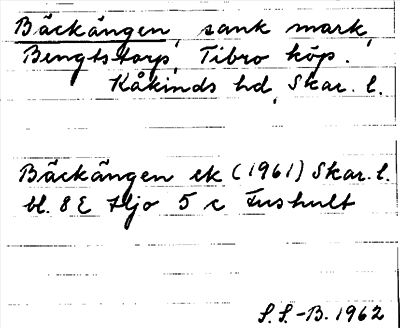 Bäckängen, sank mark,
Bengtstorp, Tibro köp.
Kåkinds hd, Skar. l.
Bäckängen ek (1961) Skar. l.
bl. 8 E Hjo 5 c Fushult
S.S.-B. 1962